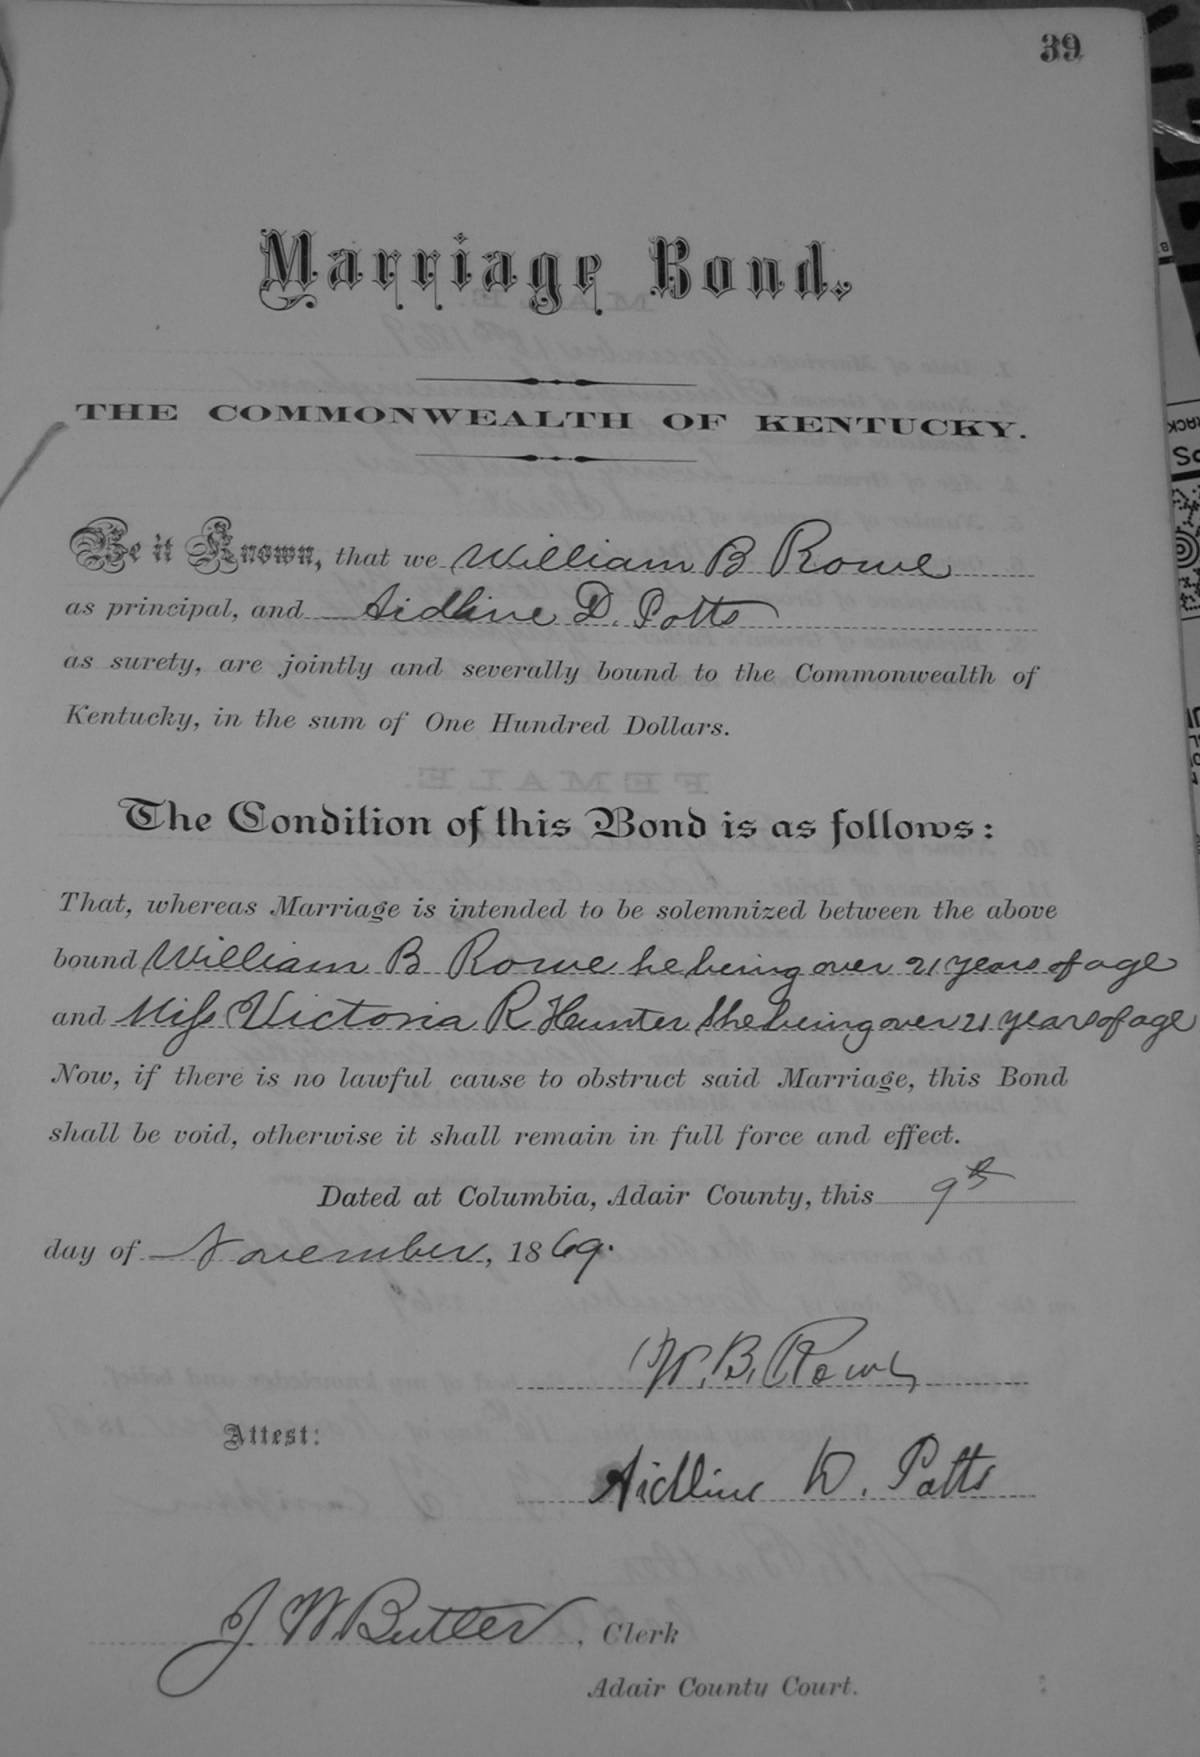 39
Marriage Bond.
THE COMMONWEALTH OF KENTUCKY.
Be it Known, that we William B Rowe
as principal, and Aidline D. Potts
as surety, are jointly and severally bound to the Commonwealth of
Kentucky, in the sum of One Hundred Dollars.
The Condition of this Bond is as follows:
That, whereas Marriage is intended to be solemnized between the above
bound William B Rowe he being over 21 years of age
and Miss Victoria R Hunter She being over 21 years of age
Now, if there is no lawful cause to obstruct said Marriage, this Bond
shall be void, otherwise it shall remain in full force and effect.
Dated at Columbia, Adair County, this 9th
day of November, 1869.
W. B. Rowe
Attest:
Aidline D. Potts
J. W. Butler, Clerk
Adair County Court.